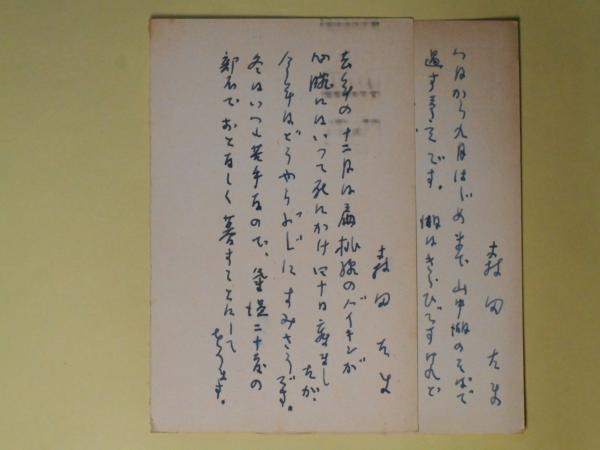 森田たま
から九月はじめまで山中湖のそばで
過す予定です。湖はきらひですけれど
森田たま
去年の十二月は扁桃腺のバイキンが
心臓にはいつて死にかけ四十日寝ました
が、
今年はどうやらぶじにすみさうです。
冬はいつも苦手なので、室温二十度の
部屋でおとなしく暮すことにして
をります。